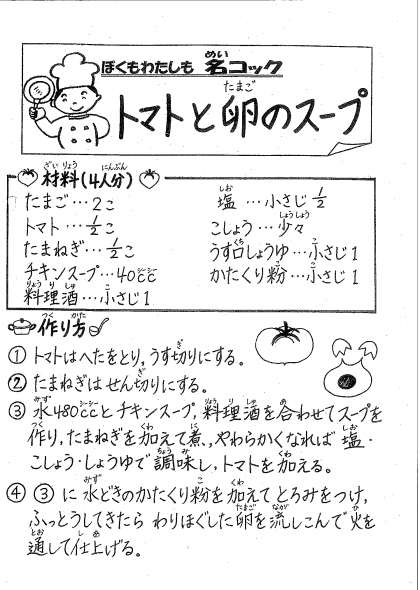 ぼくもわたしも 名コック
トマトと卵のスープ
材料(4人分)
たまご…2こ
トマト…1/2こ
たまねぎ…1/2こ
チキンスープ…40cc
料理酒…小さじ1
塩…小さじ1/2
こしょう…少々
うす口しょうゆ…小さじ1
かたくり粉…小さじ1
作り方
① トマトはへたをとり,うす切りにする。
② たまねぎは せん切りにする。
③ 水480ccとチキンスープ,料理酒を合わせてスープを
作り,たまねぎを加えて煮,やわらかくなれば 塩・
こしょう・しょうゆで調味し,トマトを加える。
④ ③に水どきのかたくり粉を加えて とろみをつけ,
ふっとうしてきたら わりほぐした卵を流しこんで火を
通して仕上げる。